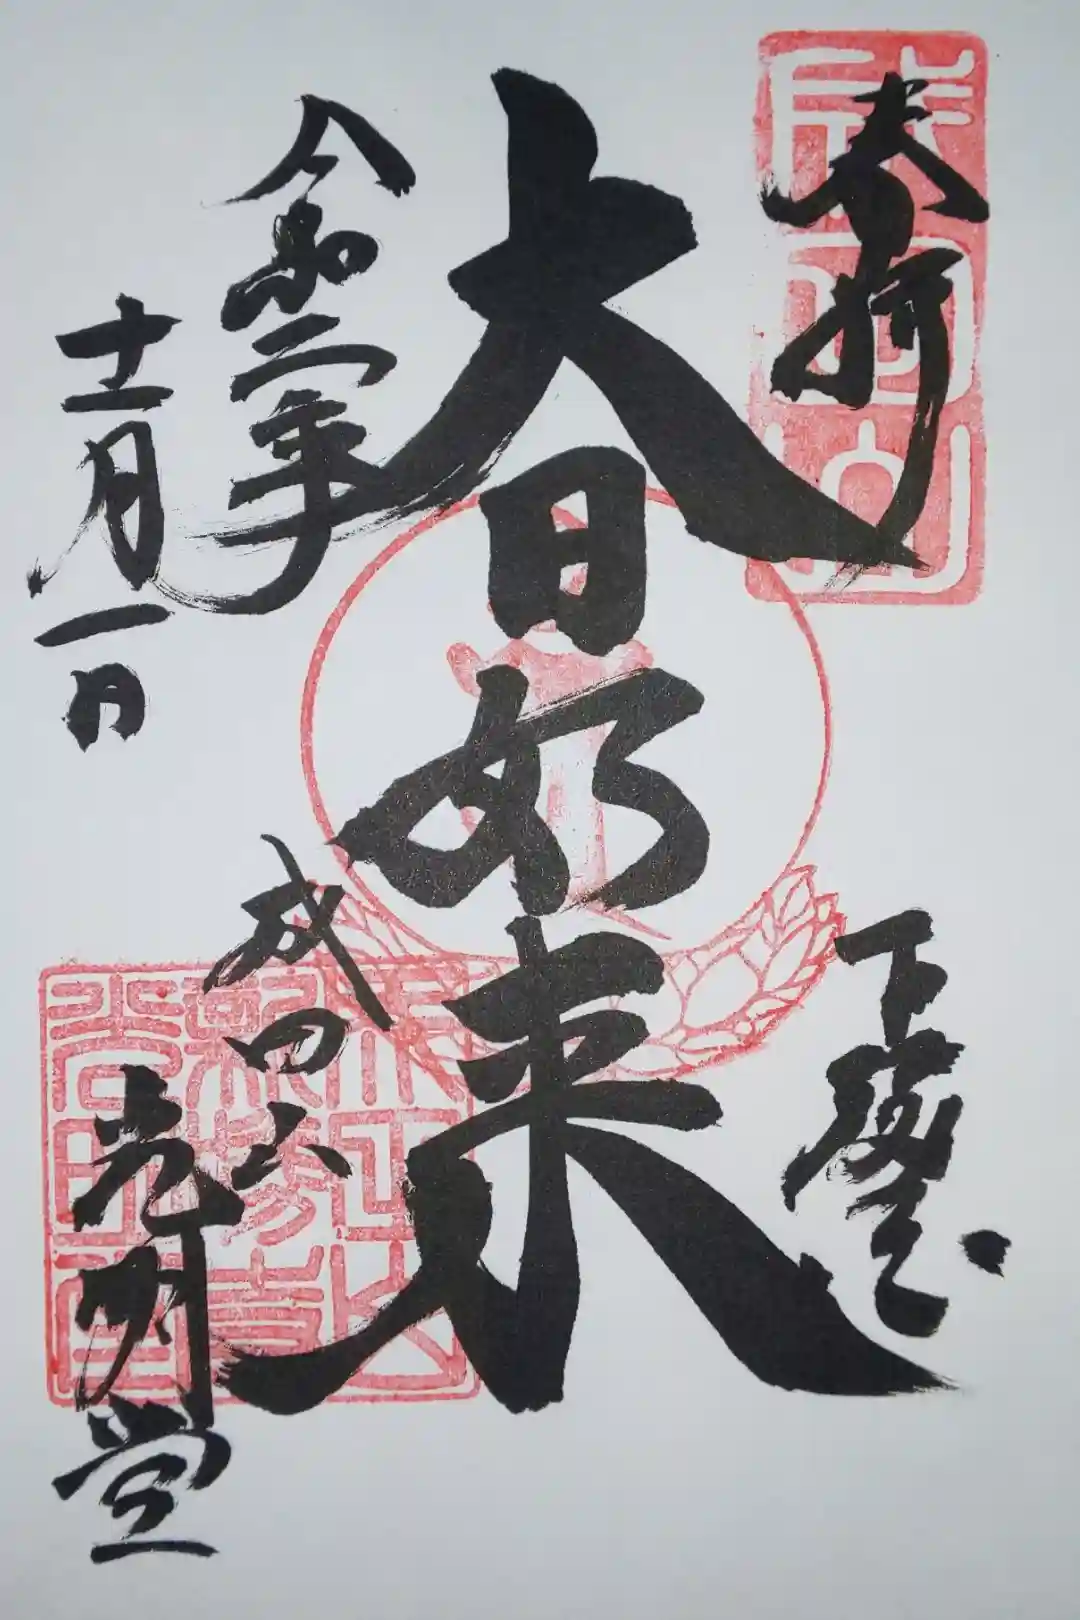 奉拝
下總
大日如来
令和二年
十二月一日
成田山
光明堂
成田山